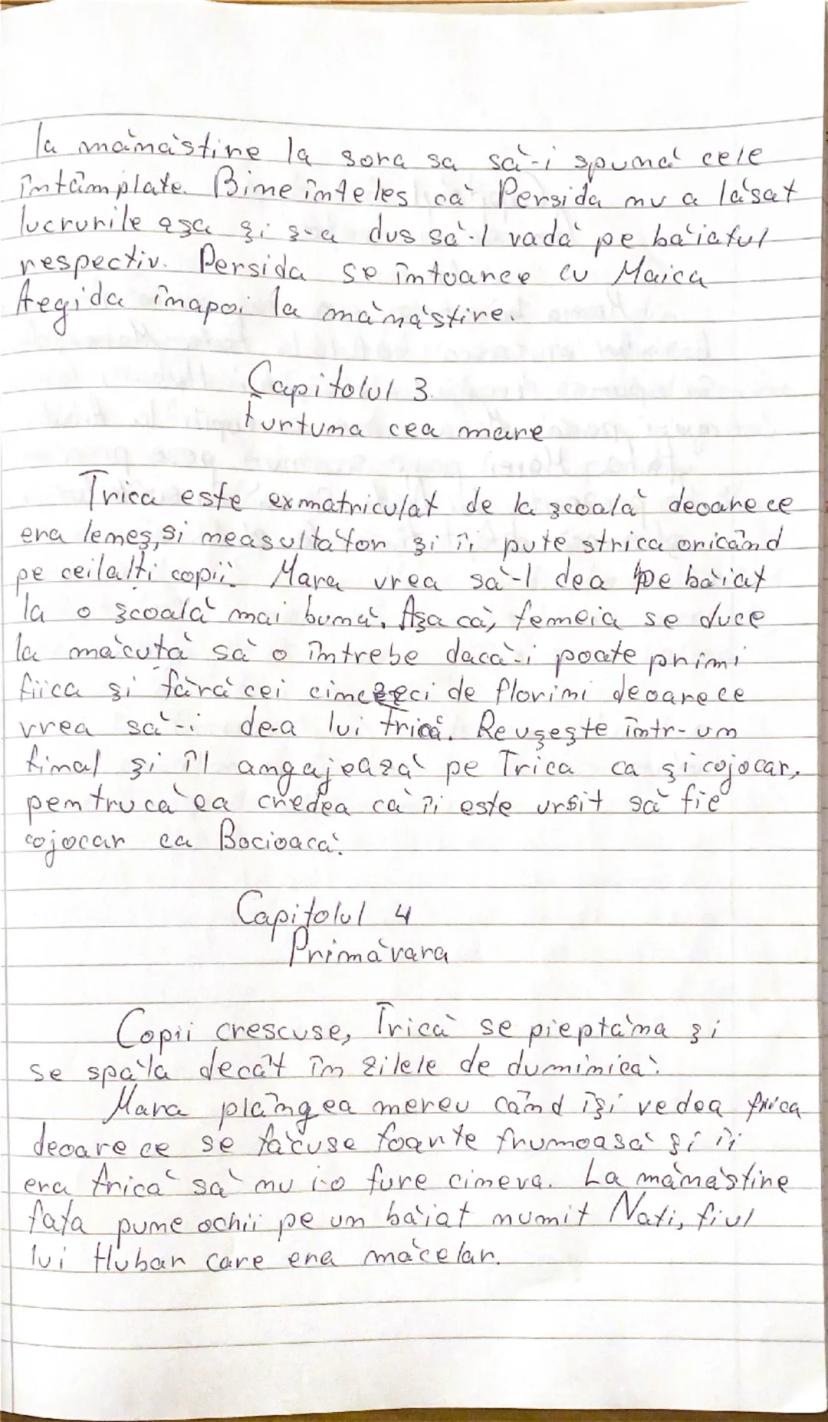 la mămăstire la sora sa să-i spună cele
întâmplate. Bineînțeles că Persida nu a lăsat
lucrurile așa și s-a dus să-l vadă pe băiatul
respectiv. Persida se întoarce cu Maica
Aegida înapoi la mămăstire.
Capitolul 3
Furtuna cea mare
Trica este exmatriculat de la școală deoarece
era lemeș, și neasultator și îi pute strica oricând
pe ceilalți copii. Mara vrea să-l dea pe băiat
la o școală mai bună. Așa că, femeia se duce
la măcuță să o întrebe dacă-i poate primi
fiica și fără cei cinezeci de florini deoarece
vrea să-i dea lui Trică. Reușește într-un
final și îl angajează pe Trica ca și cojocar,
pentru că ea credea că îi este ursit să fie
cojocar ca Bocioacă.
Capitolul 4
Primăvara
Copii crescuse, Trică se pieptăna și
se spăla decât în zilele de duminică.
Mara plângea mereu când își vedea fiica
deoarece se făcuse foante frumoasă și îi
era frică să nu i-o fure cineva. La mămăstire
fata pune ochii pe un băiat numit Nati, fiul
lui Hubar care era măcelar.